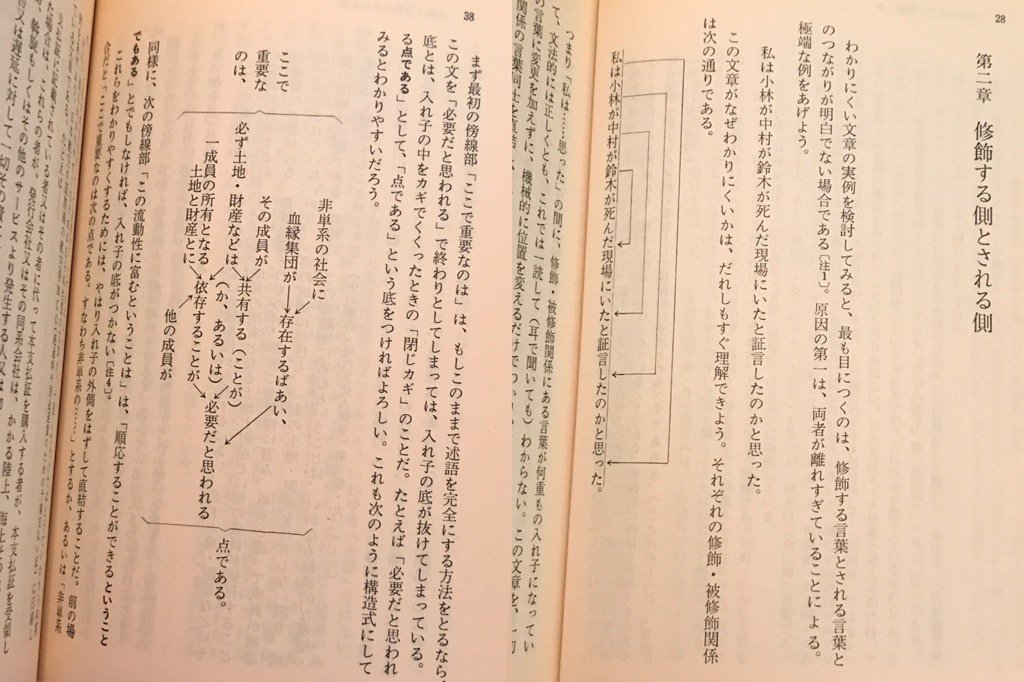 28
第二章 修飾する側とされる側
わかりにくい文章の実例を検討してみると、最も目につくのは、修飾する言葉とされる言葉と
のつながりが明白でない場合である〔注1〕。原因の第一は、両者が離れすぎていることによる。
極端な例をあげよう。
私は小林が中村が鈴木が死んだ現場にいたと証言したのかと思った。
この文章がなぜわかりにくいかは、だれしもすぐ理解できよう。それぞれの修飾・被修飾関係
は次の通りである。
私は小林が中村が鈴木が死んだ現場にいたと証言したのかと思った。
つまり「私は……思った」の間に、修飾・被修飾関係にある言葉が何重もの入れ子になってい
て、文法的には正しくとも、これでは一読して（耳で聞いても）わからない。この文章を、
の言葉に変更を加えずに、機械的に位置を変えるだけで
関係の言葉同士を直結
38
まず最初の傍線部「ここで重要なのは」は、もしこのままで述語を完全にする方法をとるなら、
この文を「必要だと思われる」で終わりとしてしまっては、入れ子の底が抜けてしまっている。
底とは、入れ子の中をカギでくくったときの「閉じカギ」のことだ。たとえば「必要だと思われ
る点である」として、「点である」という底をつければよろしい。これも次のように構造式にして
みるとわかりやすいだろう。
ここで
重要な
のは、
非単系の社会に
血縁集団が
存在するばあい、
その成員が
必ず土地・財産などは
共有する（ことが）
（か、あるいは）
一成員の所有となる
土地と財産とに
依存することが、
他の成員が
必要だと思われる
点である。
同様に、次の傍線部「この流動性に富むということは」は、「順応することができるということ
でもある」とでもしなければ、入れ子の底がつかない〔注4〕。
これらをわかりやすくするためには、やはり入れ子の外側をはずして直結することだ。前の場
合だと「ここで重要なのは次の点である。すなわち非単系の……」とするか、あるいは「非単系
た場合は、これらの者が、発行会社又はその同系会社は、かかる陸上、海上